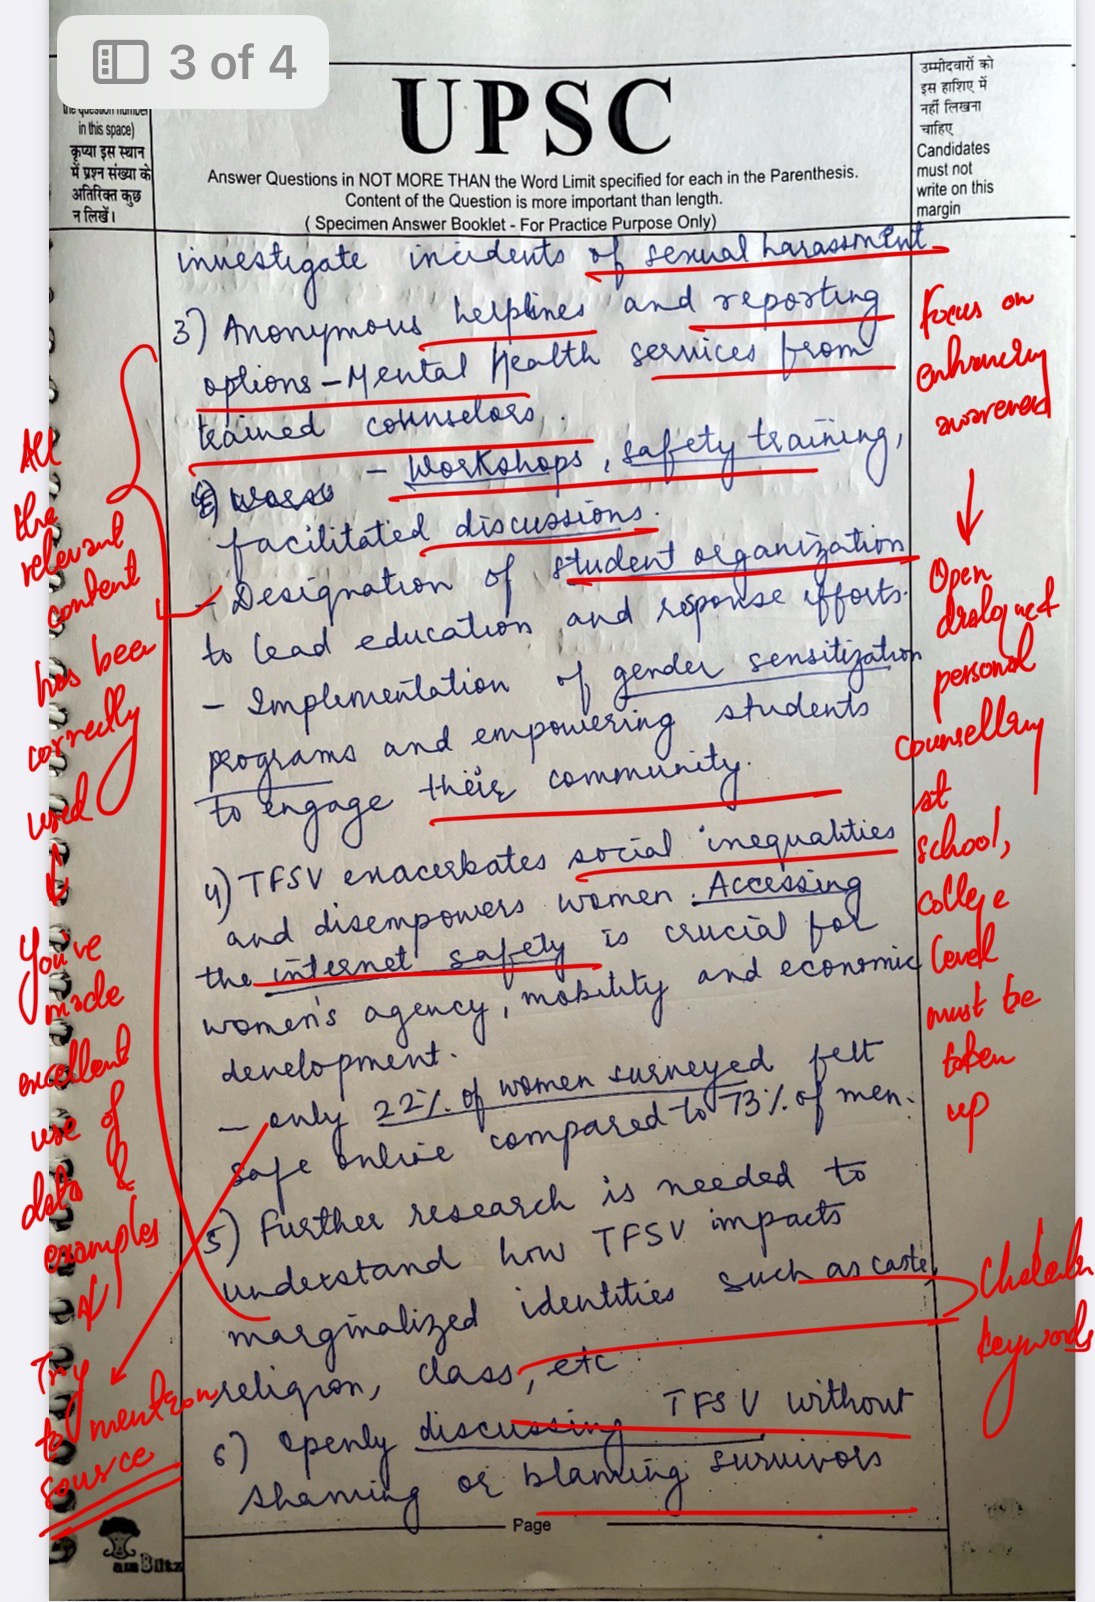 3 of 4
the question number
in this space)
कृप्या इस स्थान
में प्रश्न संख्या के
अतिरिक्त कुछ
न लिखें।
UPSC
Answer Questions in NOT MORE THAN the Word Limit specified for each in the Parenthesis.
Content of the Question is more important than length.
( Specimen Answer Booklet - For Practice Purpose Only)
उम्मीदवारों को
इस हाशिए में
नहीं लिखना
चाहिए
Candidates
must not
write on this
margin
investigate incidents of sexual harassment
3) Anonymous helplines and reporting
options - Mental Health services from
trained counselors.
- Workshops, safety training,
facilitated discussions.
- Designation of student organization
to lead education and reponse efforts.
- Implementation of gender sensitization
programs and empowering students
to engage their community.
4) TFSV exacerbates social inequalities
and disempowers women. Accessing
the internet safety is crucial for
women's agency, mobility and economic
development.
- only 22% of women surveyed felt
safe online compared to 73% of men.
5) Further research is needed to
understand how TFSV impacts
marginalized identities such as caste,
religion, class, etc.
6) Openly discussing TFSV without
shaming or blaming survivors
All
the
relevant
content
has been
correctly
used
You've
made
excellent
use of
data &
examples
Try
to mention
source
Focus on
enhancing
awareness
Open
dialogue &
personal
counselling
at
school,
college
level
must be
taken
up
keywords
Page